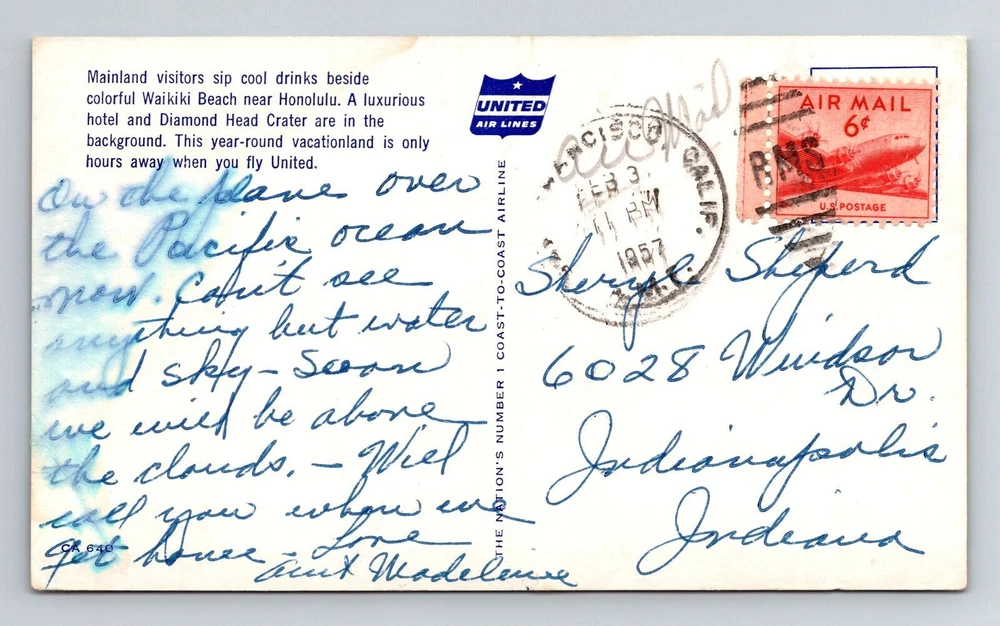 Mainland visitors sip cool drinks beside
colorful Waikiki Beach near Honolulu. A luxurious
hotel and Diamond Head Crater are in the
background. This year-round vacationland is only
hours away when you fly United.
On the plane over
the Pacific ocean
now. Can't see
anything but water
and sky - Soon
we will be above
the clouds. - Will
call you when we
get home - Love
Aunt Madelene
CA 640
UNITED
AIR LINES
THE NATION'S NUMBER 1 COAST-TO-COAST AIRLINE
Air Mail
FRANCISCO CALIF.
FEB 3
11 PM
1957
A.M.F.
AIR MAIL
6¢
U.S. POSTAGE
Sheryl Sheperd
6028 Windsor
Dr.
Indianapolis
Indiana